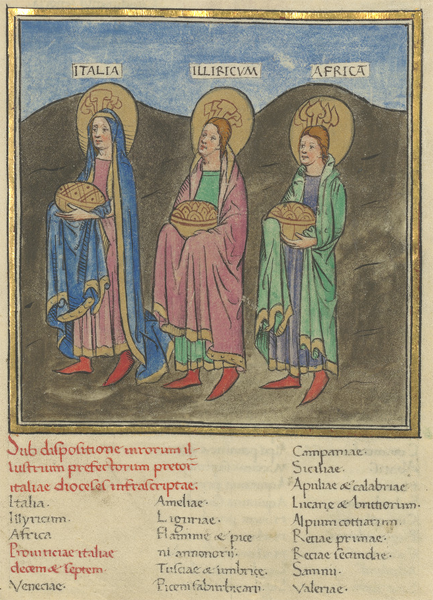 ITALIA
ILLIRICVM
AFRICA
Sub dispositione uirorum il-
lustrium prefectorum pretor
italiae dioceses infrascriptae:
Italia.
Illyricum.
Africa
Prouinciae italiae
decem & septem.
Veneciae.
Ameliae.
Liguriae.
Flamine & pice
ni annonorii.
Tusciae & umbrice.
Piceni
Campaniae.
Siciliae.
Apuliae & calabriae
Lucanie & brithorum.
Alpium cotharum.
Reciae primae.
Reciae secundae.
Samnii.
Valeriae.